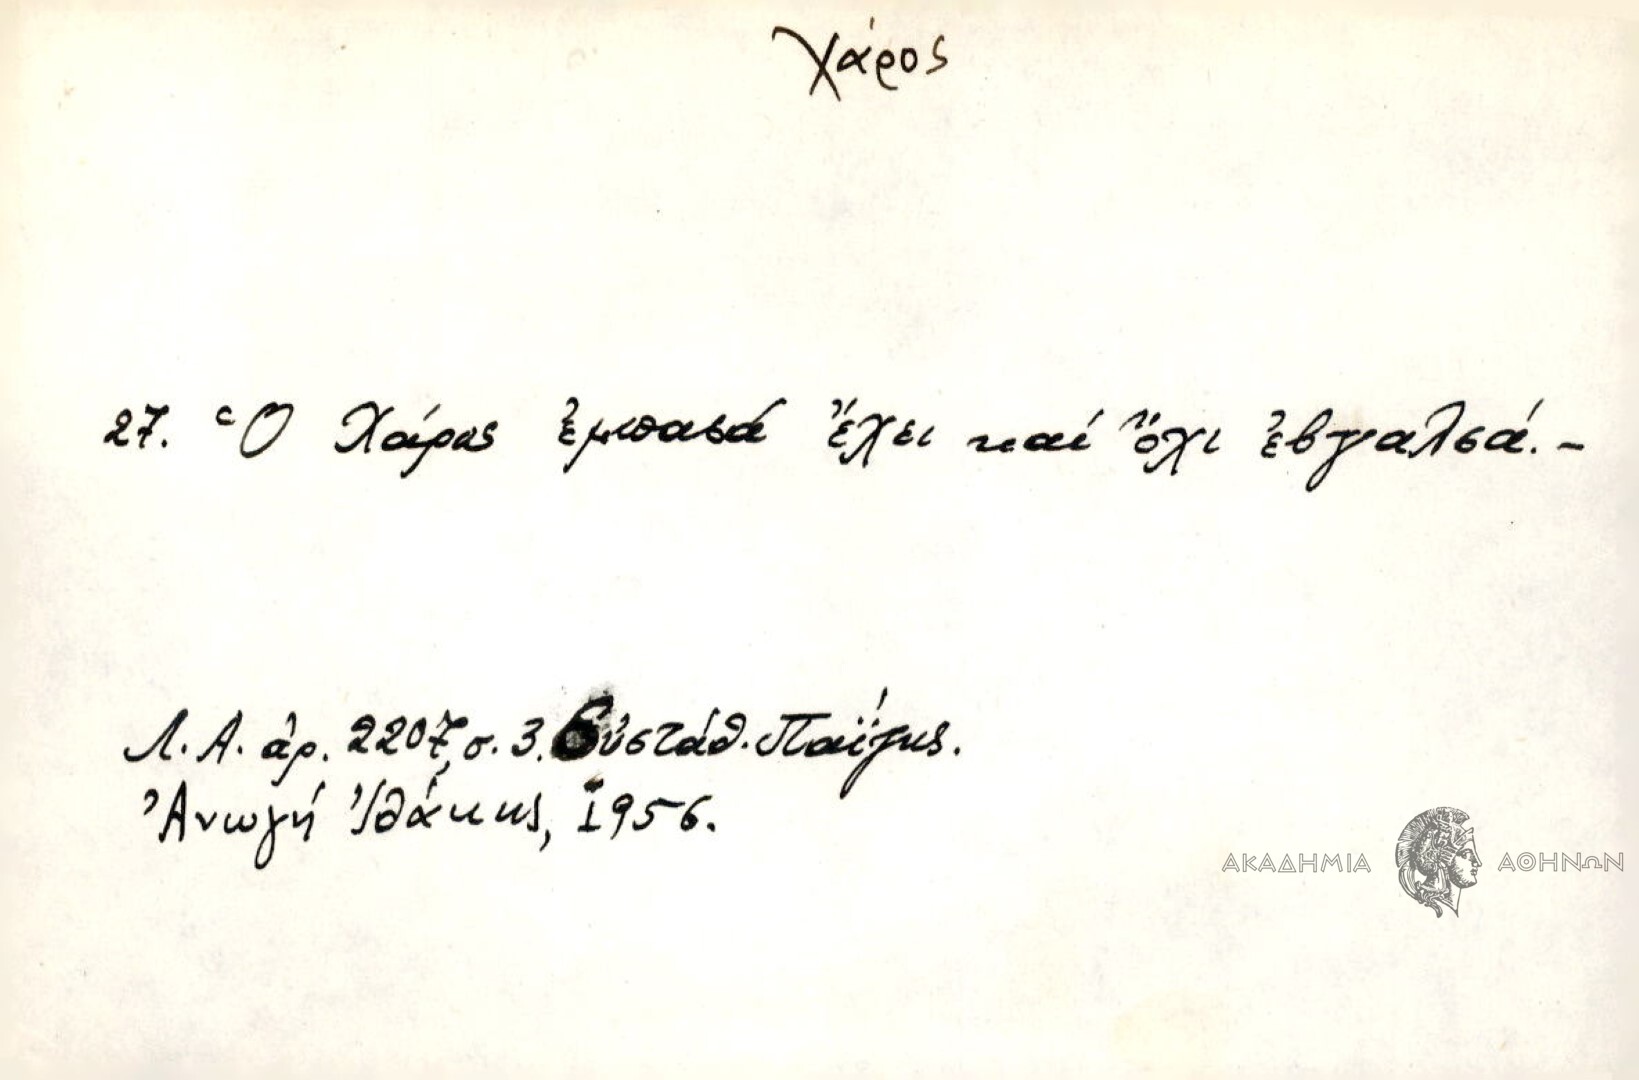 Χάρος
27. Ὁ Χάρος ἐμπασά ἔχει καί ὄχι ἐβγαλσά. –
Λ. Α. ἀρ. 2207, σ. 3. Εὐστάθ. Παΐζης.
Ἀνωγή Ἰθάκης, 1956.
ΑΚΑΔΗΜΙΑ ΑΘΗΝΩΝ